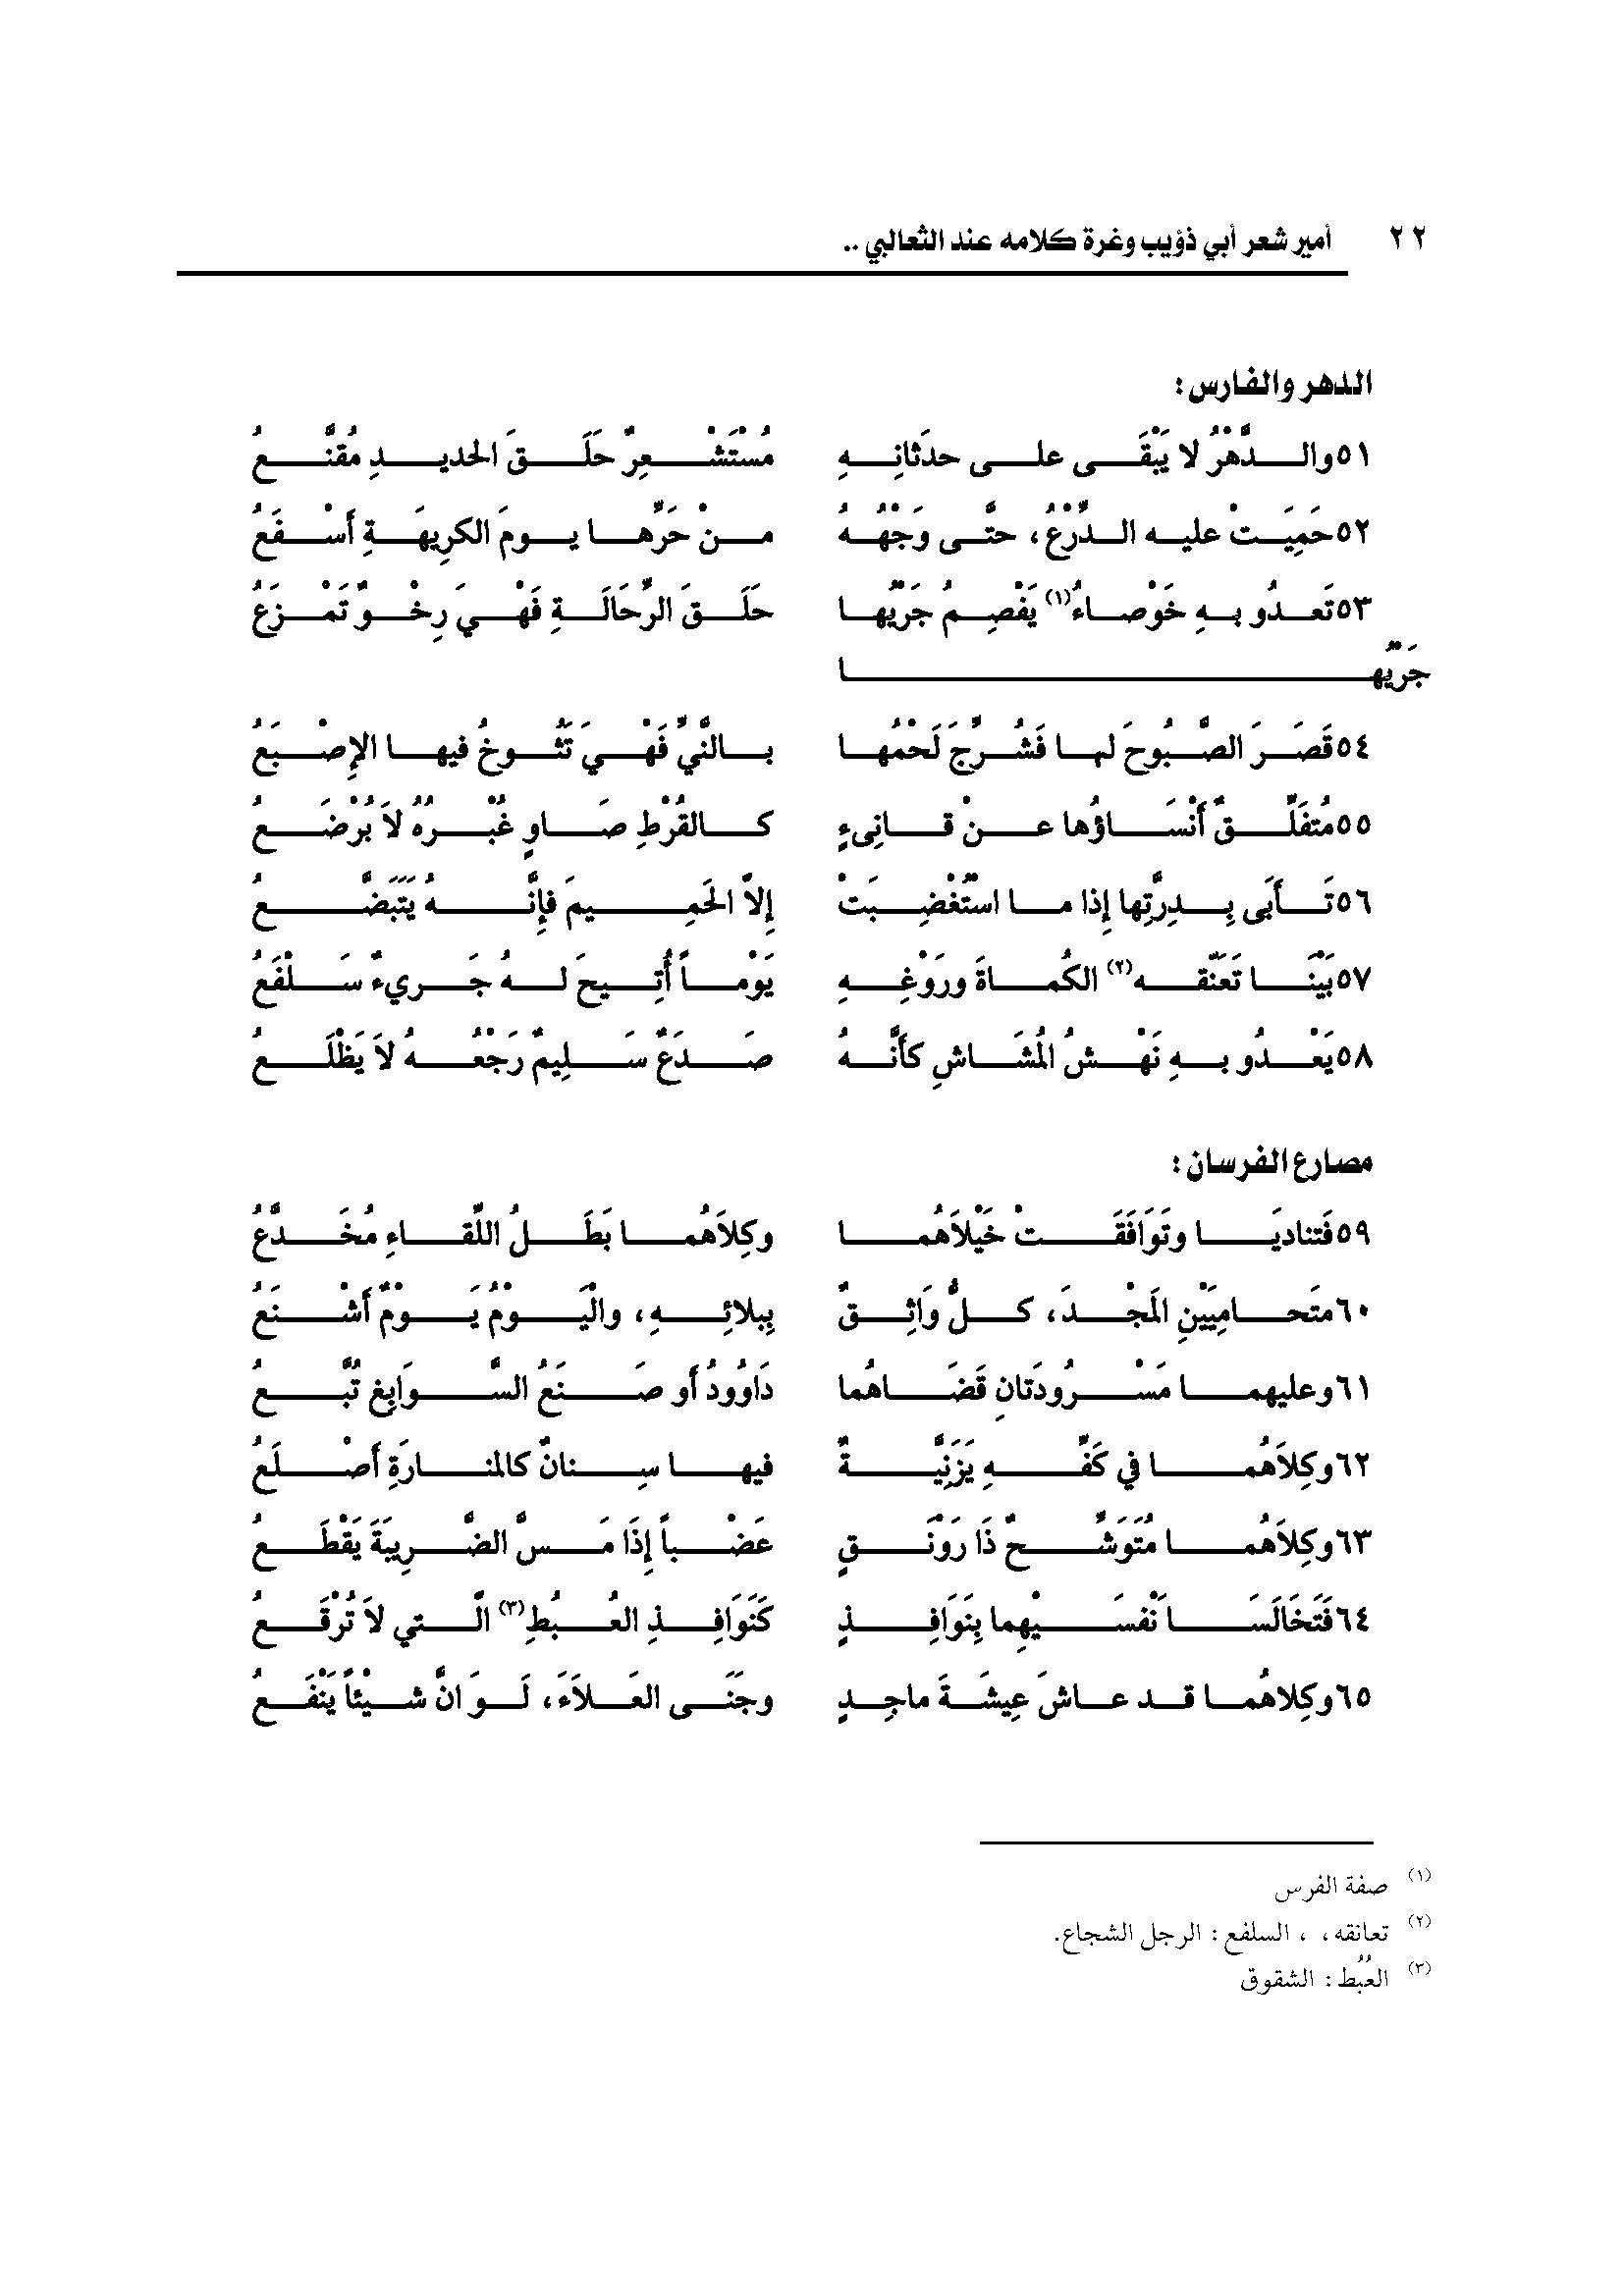 ٢٢ أمير شعر أبي ذؤيب وغرة كلامه عند الثعالبي ..
الدهر والفارس :
٥١والدَّهْرُ لا يَبْقَى على حدَثانِهِ مُسْتَشْعِرٌ حَلَقَ الحديدِ مُقنَّعُ
٥٢حَمِيَتْ عليه الدِّرْعُ، حتَّى وَجْهُهُ منْ حَرِّها يومَ الكرِيهَةِ أَسْفَعُ
٥٣تَعدُو بهِ خَوْصاءُ(١) يَفْصِمُ جَرْيُها حَلَقَ الرِّحَالَةِ فَهْيَ رِخْوٌ تَمْزَعُ
جَرْيُها
٥٤قَصَرَ الصَّبُوحَ لها فَشُرِّجَ لَحْمُها بالنَّيِّ فَهْيَ تَثُوخُ فيها الإِصْبَعُ
٥٥مُتفَلِّقٌ أَنْسَاؤُها عنْ قانِىءٍ كالقُرْطِ صَاوٍ غُبْرُهُ لاَ يُرْضَعُ
٥٦تَأَبَى بِدِرَّتِها إذا ما استُغْضِبَتْ إلاَّ الحَمِيمَ فإِنَّهُ يَتَبَضَّعُ
٥٧بَيْنَا تَعَنّقه(٢) الكُماةَ ورَوْغِهِ يَوْماً أُتِيحَ لهُ جَريءٌ سَلْفَعُ
٥٨يَعْدُو بهِ نَهْشُ المُشَاشِ كأَنَّهُ صَدَعٌ سَلِيمٌ رَجْعُهُ لاَ يَظْلَعُ
مصارع الفرسان :
٥٩فَتناديَا وتَوَافَقَتْ خَيْلاَهُما وكِلاَهُما بَطَلُ اللّقاءِ مُخَدَّعُ
٦٠متَحامِيَيْنِ المَجْدَ، كلٌّ وَاثِقٌ بِبلائِهِ، والْيَوْمُ يَوْمٌ أَشْنَعُ
٦١وعليهما مَسْرُودَتانِ قَضَاهُما دَاوُودُ أو صَنَعُ السَّوَابِغِ تُبَّعُ
٦٢وكِلاَهُما في كَفِّهِ يَزَنِيَّةٌ فيها سِنانٌ كالمنارَةِ أَصْلَعُ
٦٣وكِلاَهُما مُتَوَشِّحٌ ذَا رَوْنَقٍ عَضْباً إِذَا مَسَّ الضَّرِيبَةَ يَقْطَعُ
٦٤فَتَخَالَسَا نَفسَيْهِما بِنَوَافِذٍ كَنَوَافِذِ العُبُطِ(٣) الَّتي لاَ تُرْقَعُ
٦٥وكِلاهُما قد عاشَ عِيشَةَ ماجِدٍ وجَنَى العَلاَءَ، لَو انَّ شيْئاً يَنْفَعُ
(١) صفة الفرس
(٢) تعانقه، ، السلفع : الرجل الشجاع.
(٣) العُبُط : الشقوق